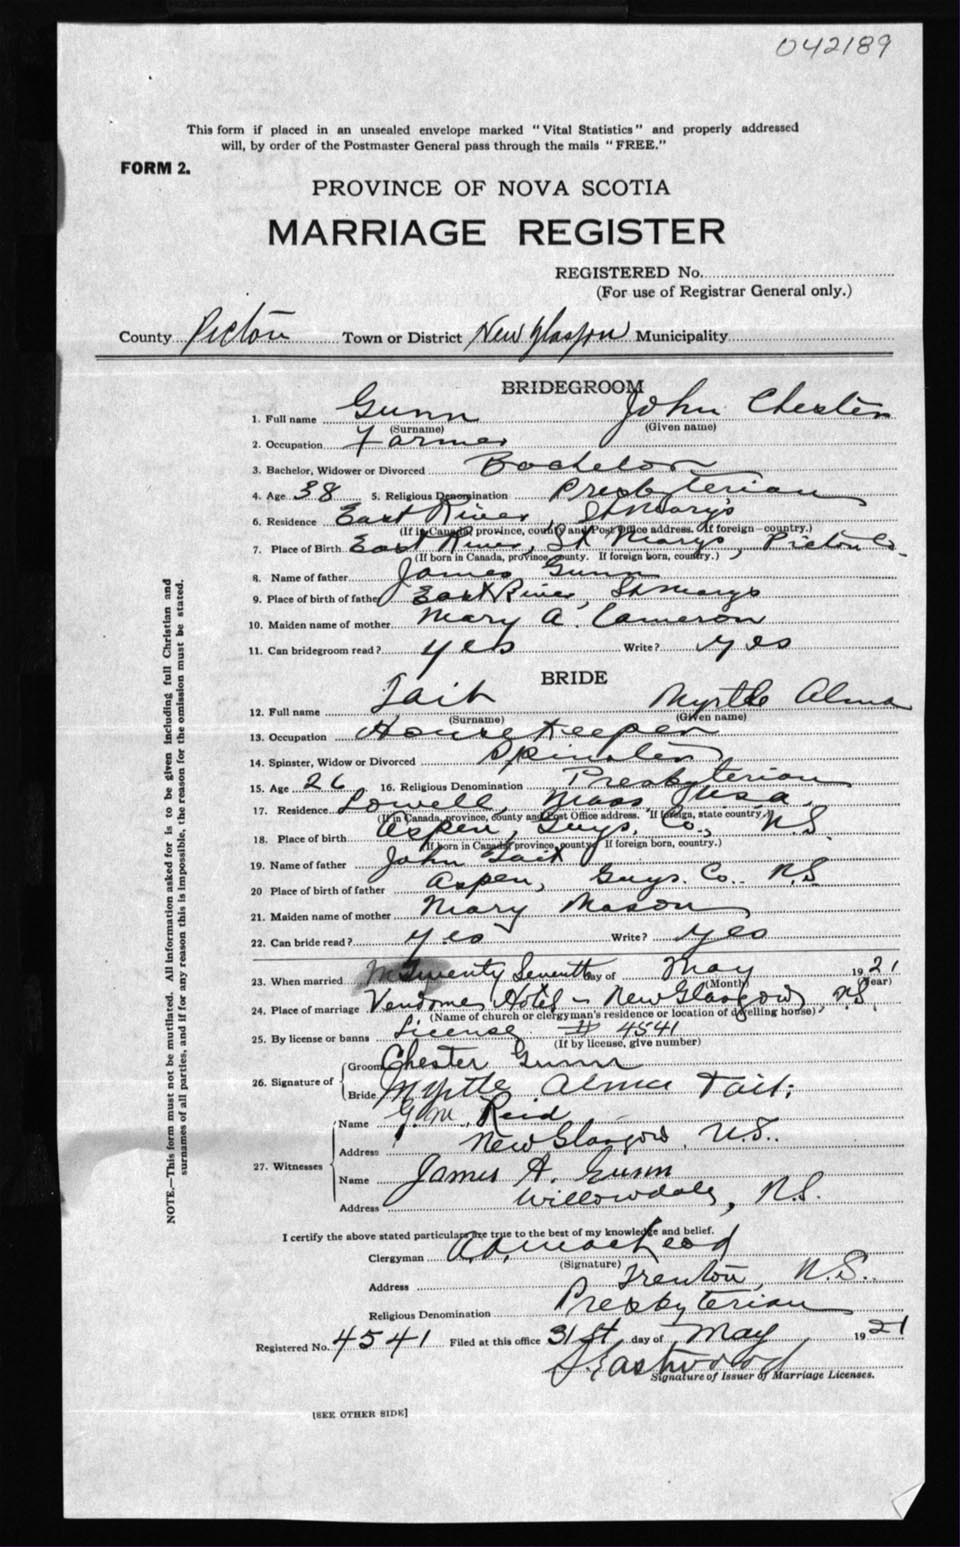 042189
This form if placed in an unsealed envelope marked "Vital Statistics" and properly addressed
will, by order of the Postmaster General pass through the mails "FREE."
FORM 2.
PROVINCE OF NOVA SCOTIA
MARRIAGE REGISTER
REGISTERED No.
(For use of Registrar General only.)
County Pictou Town or District New Glasgow Municipality
BRIDEGROOM
1. Full name Gunn John Chester
(Surname) (Given name)
2. Occupation Farmer
3. Bachelor, Widower or Divorced Bachelor
4. Age 38 5. Religious Denomination Presbyterian
6. Residence East River St Marys
(If in Canada, province, county and Post Office address. If foreign—country.)
7. Place of Birth East River, St. Marys, Pictou Co.
(If born in Canada, province, county. If foreign born, country.)
8. Name of father James Gunn
9. Place of birth of father East River, St Marys
10. Maiden name of mother Mary A. Cameron
11. Can bridegroom read? yes Write? yes
BRIDE
12. Full name Tait Myrtle Alma
(Surname) (Given name)
13. Occupation House Keeper
14. Spinster, Widow or Divorced Spinster
15. Age 26 16. Religious Denomination Presbyterian
17. Residence Lowell, Mass, Usa.
(If in Canada, province, county and Post Office address. If foreign, state country.)
18. Place of birth Aspen, Guys. Co., N.S.
(If born in Canada, province, county. If foreign born, country.)
19. Name of father John Tait
20 Place of birth of father Aspen, Guys. Co.. N.S
21. Maiden name of mother Mary Mason
22. Can bride read? yes Write? yes
23. When married Twenty Seventh day of May 1921
(Month) (Year)
24. Place of marriage Vendome Hotel - New Glasgow, N.S.
(Name of church or clergyman's residence or location of dwelling house)
25. By license or banns License # 4541
(If by license, give number)
26. Signature of Groom Chester Gunn
Bride Myrtle Alma Tait.
27. Witnesses Name Reid
Address New Glasgow, N.S..
Name James A. Gunn
Address Willowdale, N.S.
I certify the above stated particulars are true to the best of my knowledge and belief.
Clergyman A.D. MacLeod
(Signature)
Address Trenton, N.S..
Religious Denomination Presbyterian
Registered No. 4541 Filed at this office 31st day of May 1921
Eastwood
Signature of Issuer of Marriage Licenses.
[SEE OTHER SIDE]
NOTE.—This form must not be mutilated. All information asked for is to be given including full Christian and
surnames of all parties, and if for any reason this is impossible, the reason for the omission must be stated.